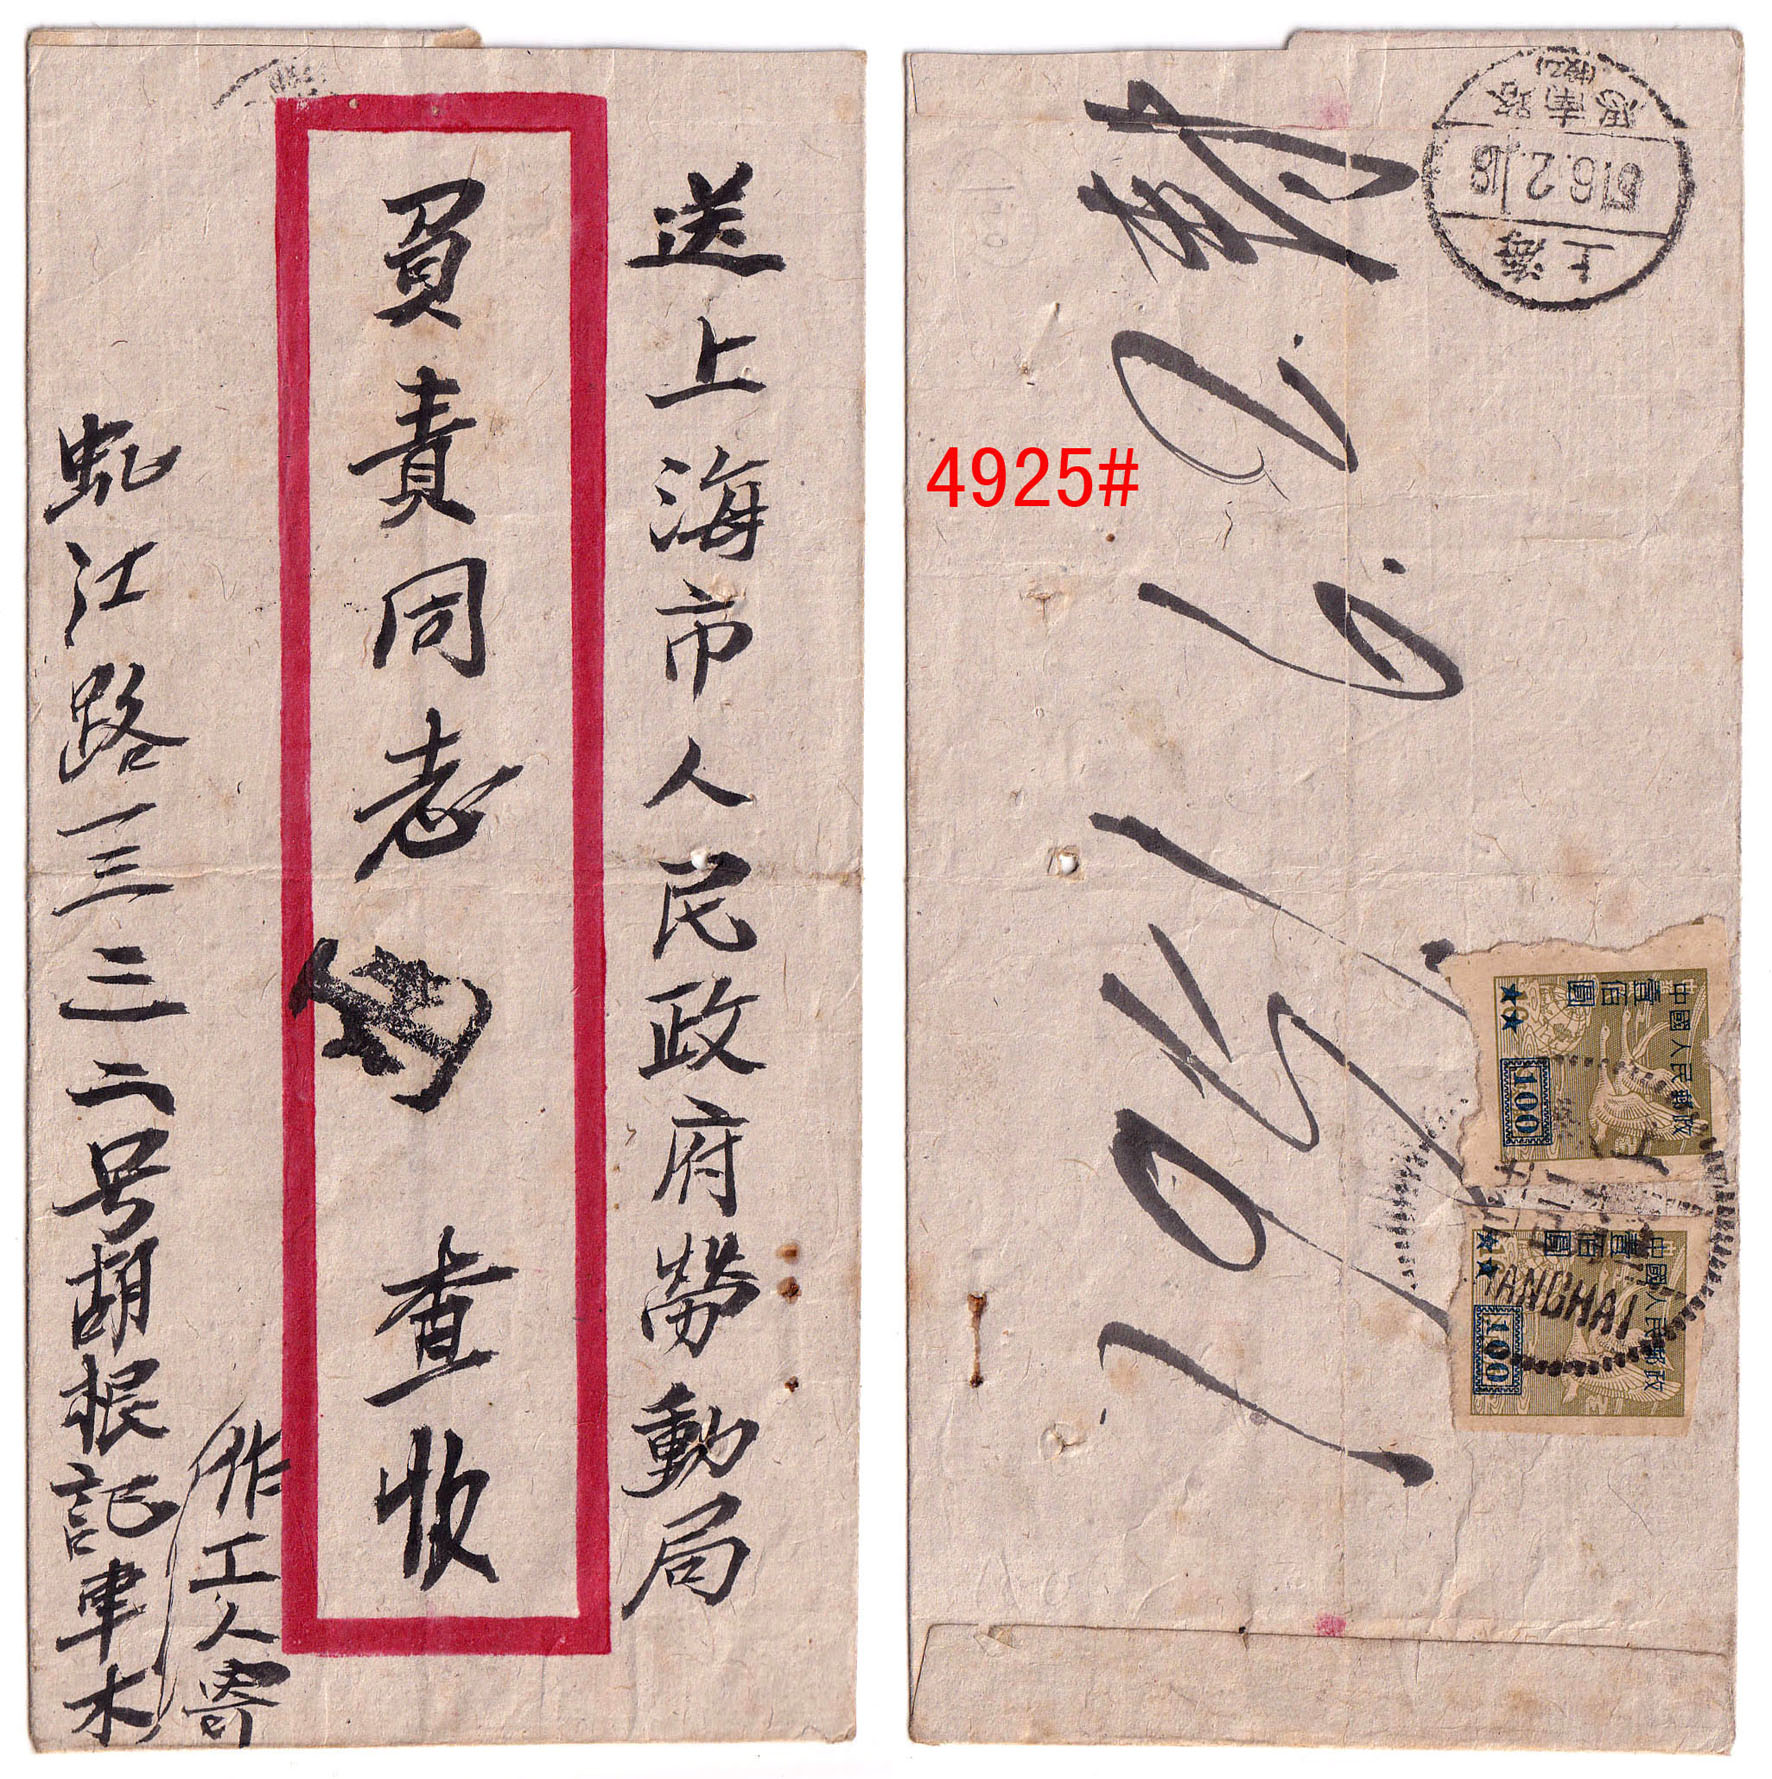 送上海市人民政府勞動局
負責同志 鈞 查收
虬江路一三三二号胡根記車木
作工人寄
4925#
1951. 6. 2.
上海
51.6.2.18
思南路
中國人民郵政
壹佰圓
100
中國人民郵政
壹佰圓
100
上
SHANGHAI